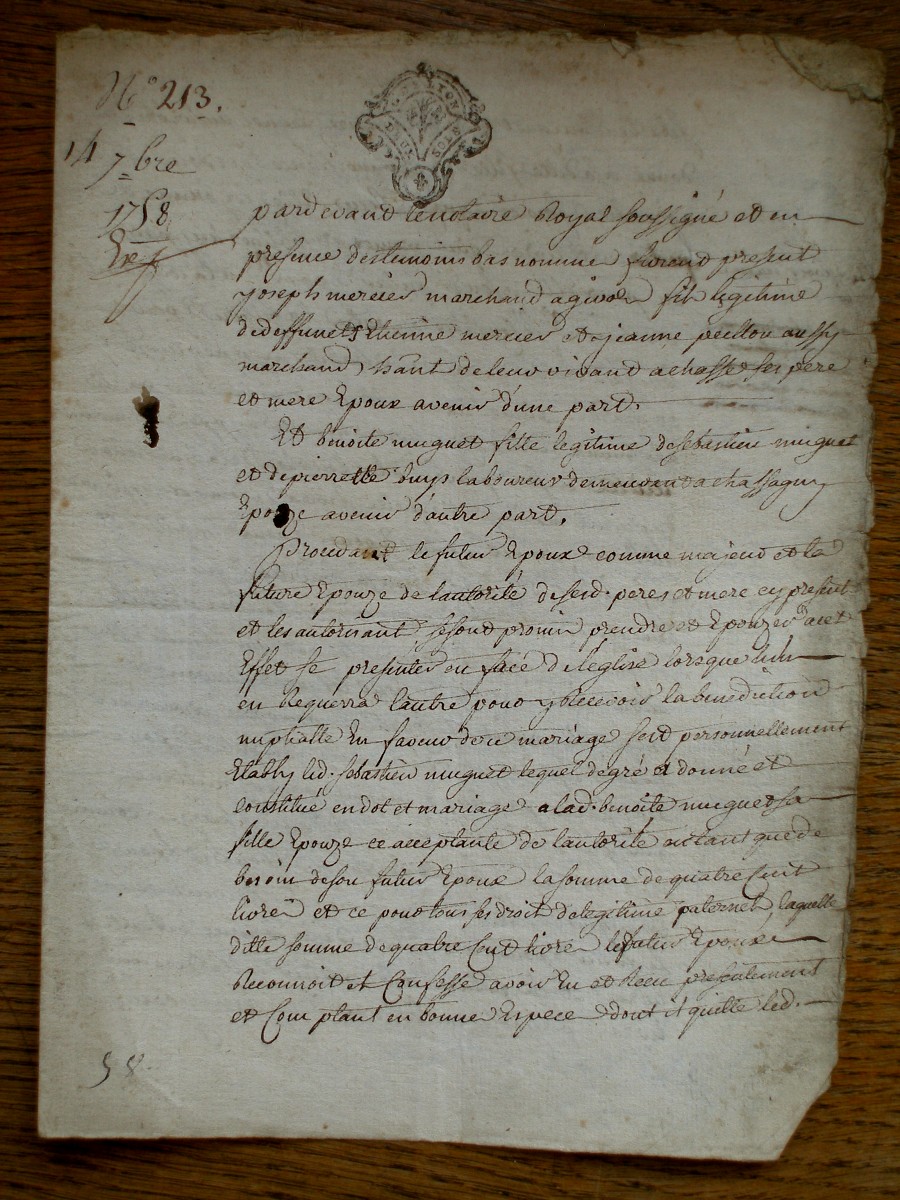 N° 213.
14 7bre
1758
G. DE LYON
DEUX SOLS
pardevant le notaire Royal soussigné et en
presence des temoins bas nommes furent present
joseph mercier marchand a givors fils legitime
de deffunets Etienne mercier et jeanne peillou aussy
marchand de leur vivant a chassé ses pere
et mere Epoux avenir dune part.
Et benoite muguet fille legitime de sebastien muguet
et de pierrette buys laboureur demeurent a chassagny
Epouze avenir d'autre part.
Procedant le futur Epoux comme majeur et la
future Epouze de lautorité de sesd. peres et mere cy present
et les autorisant se sont promis prendre et Epouzer a cet
Effet se presenter en face de leglise lorsque lun
en Requerra lautre pour y recevoir la benediction
nuptialle En faveur de ce mariage sest personnellement
Etably led. sebastien muguet lequel de gré a donné et
constitué en dot et mariage a lad. benoite muguet sa
fille Epouze ce acceptante de lautorité autant que de
besoin de son futur Epoux la somme de quatre cent
livres et ce pour tous ses droit de legitime paternel, laquelle
ditte somme de quatre cent livres le futur Epoux
Reconnoit et Confesse avoir Eu et Reçu presentement
et Comptant en bonne Espece dont il quitte led.
58